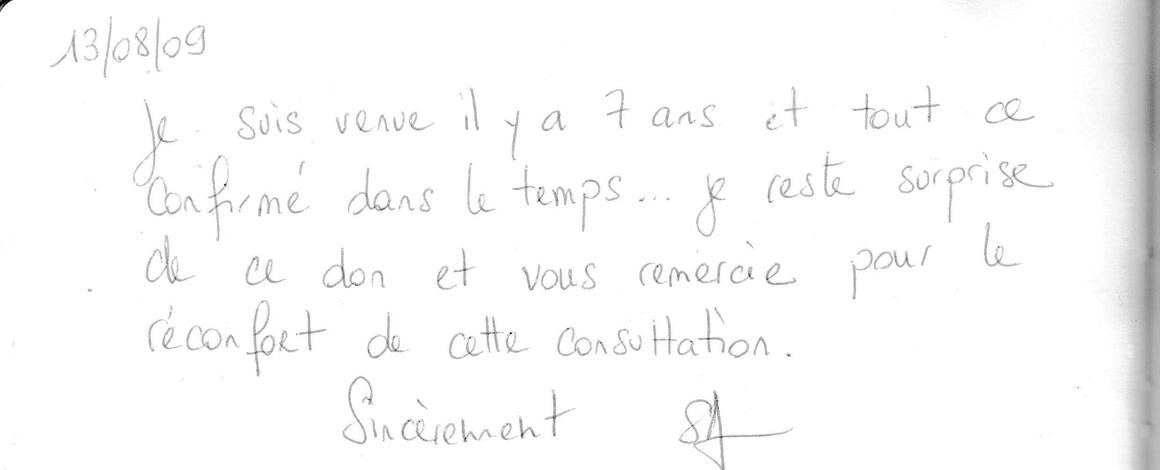 13/08/09
Je suis venue il y a 7 ans et tout ce
confirmé dans le temps... je reste surprise
de ce don et vous remercie pour le
réconfort de cette consultation.
Sincèrement